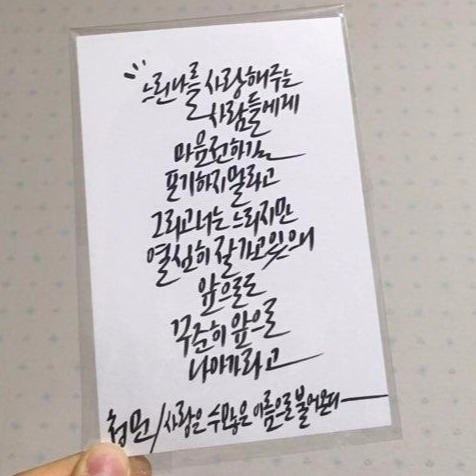 느린 나를 사랑해주는
사람들에게
마음 전하길
포기하지 말라고
그리고 너는 느리지만
열심히 잘 가고 있으니
앞으로도
꾸준히 앞으로
나아가라고
청민/사랑은 수많은 이름으로 불어온다